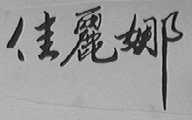 佳麗娜